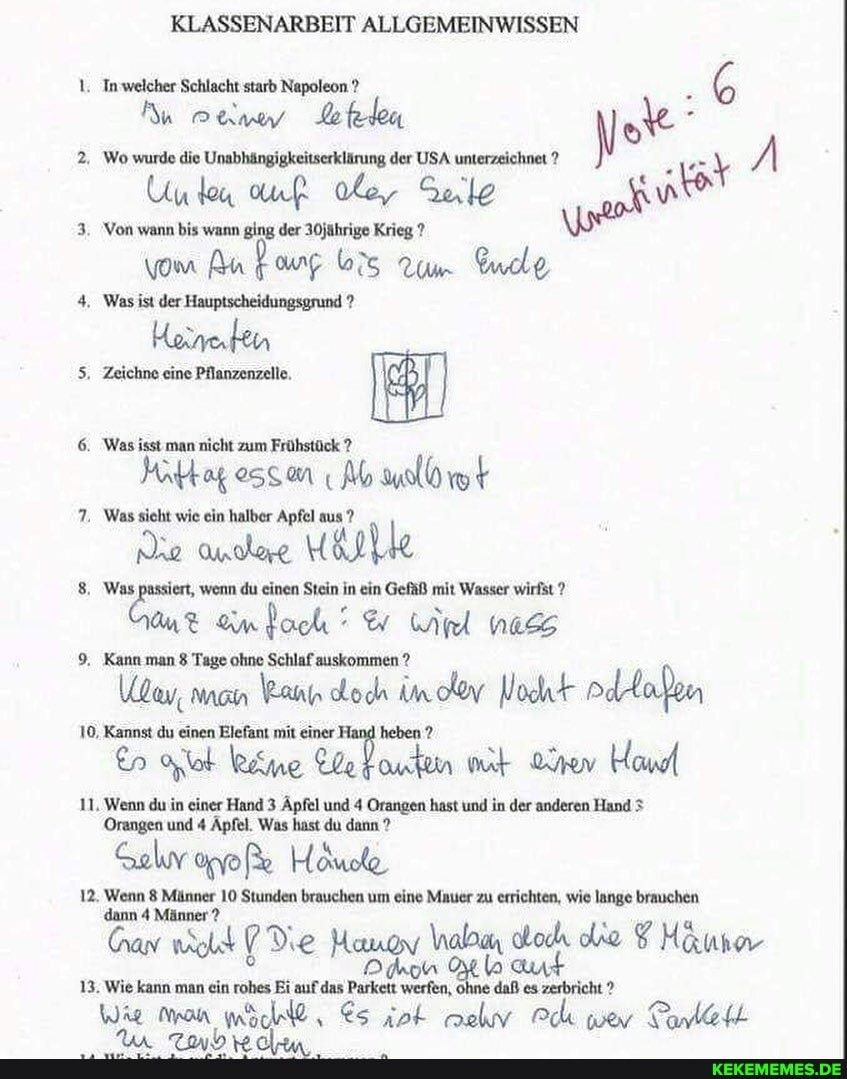 KLASSENARBEIT ALLGEMEINWISSEN
Note: 6
Kreativität 1
1. In welcher Schlacht starb Napoleon ?
In seiner letzten
2. Wo wurde die Unabhängigkeitserklärung der USA unterzeichnet ?
Unten auf der Seite
3. Von wann bis wann ging der 30jährige Krieg ?
vom Anfang bis zum Ende
4. Was ist der Hauptscheidungsgrund ?
Heiraten
5. Zeichne eine Pflanzenzelle.
6. Was isst man nicht zum Frühstück ?
Mittagessen, Abendbrot
7. Was sieht wie ein halber Apfel aus ?
Die andere Hälfte
8. Was passiert, wenn du einen Stein in ein Gefäß mit Wasser wirfst ?
Ganz einfach: Er wird nass
9. Kann man 8 Tage ohne Schlaf auskommen ?
Klar, man kann doch in der Nacht schlafen
10. Kannst du einen Elefant mit einer Hand heben ?
Es gibt keine Elefanten mit einer Hand
11. Wenn du in einer Hand 3 Äpfel und 4 Orangen hast und in der anderen Hand 3
Orangen und 4 Äpfel. Was hast du dann ?
Sehr große Hände
12. Wenn 8 Männer 10 Stunden brauchen um eine Mauer zu errichten, wie lange brauchen
dann 4 Männer ?
Gar nicht! Die Mauer haben doch die 8 Männer
schon gebaut
13. Wie kann man ein rohes Ei auf das Parkett werfen, ohne daß es zerbricht ?
Wie man möchte, Es ist sehr schwer Parkett
zu zerbrechen
KEKEMEMES.DE